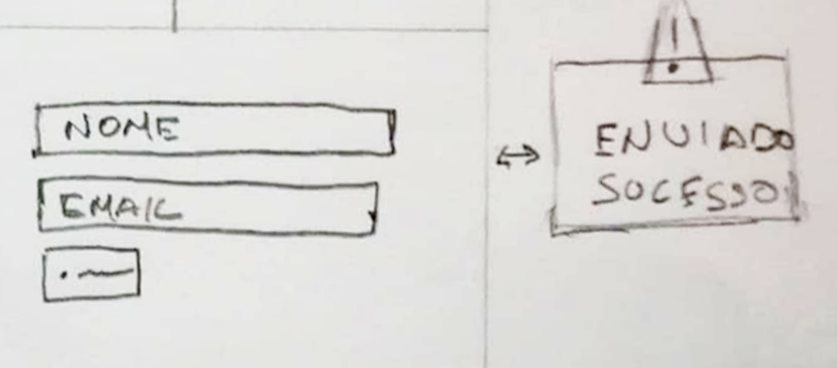 NOME
EMAIL
!
ENVIADO
SUCESSO!